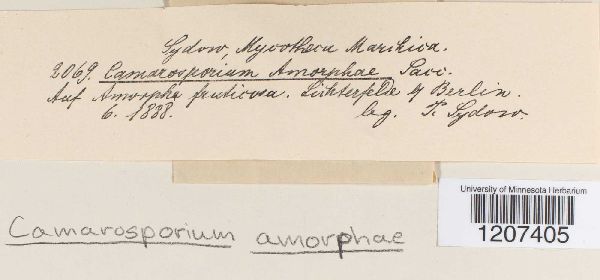 Sydow, Mycotheca Marchica.
2069. Camarosporium Amorphae Sacc.
Auf Amorpha fruticosa. Lichterfelde b/ Berlin.
6. 1888. leg. P. Sydow.
University of Minnesota Herbarium
1207405
Camarosporium amorphae